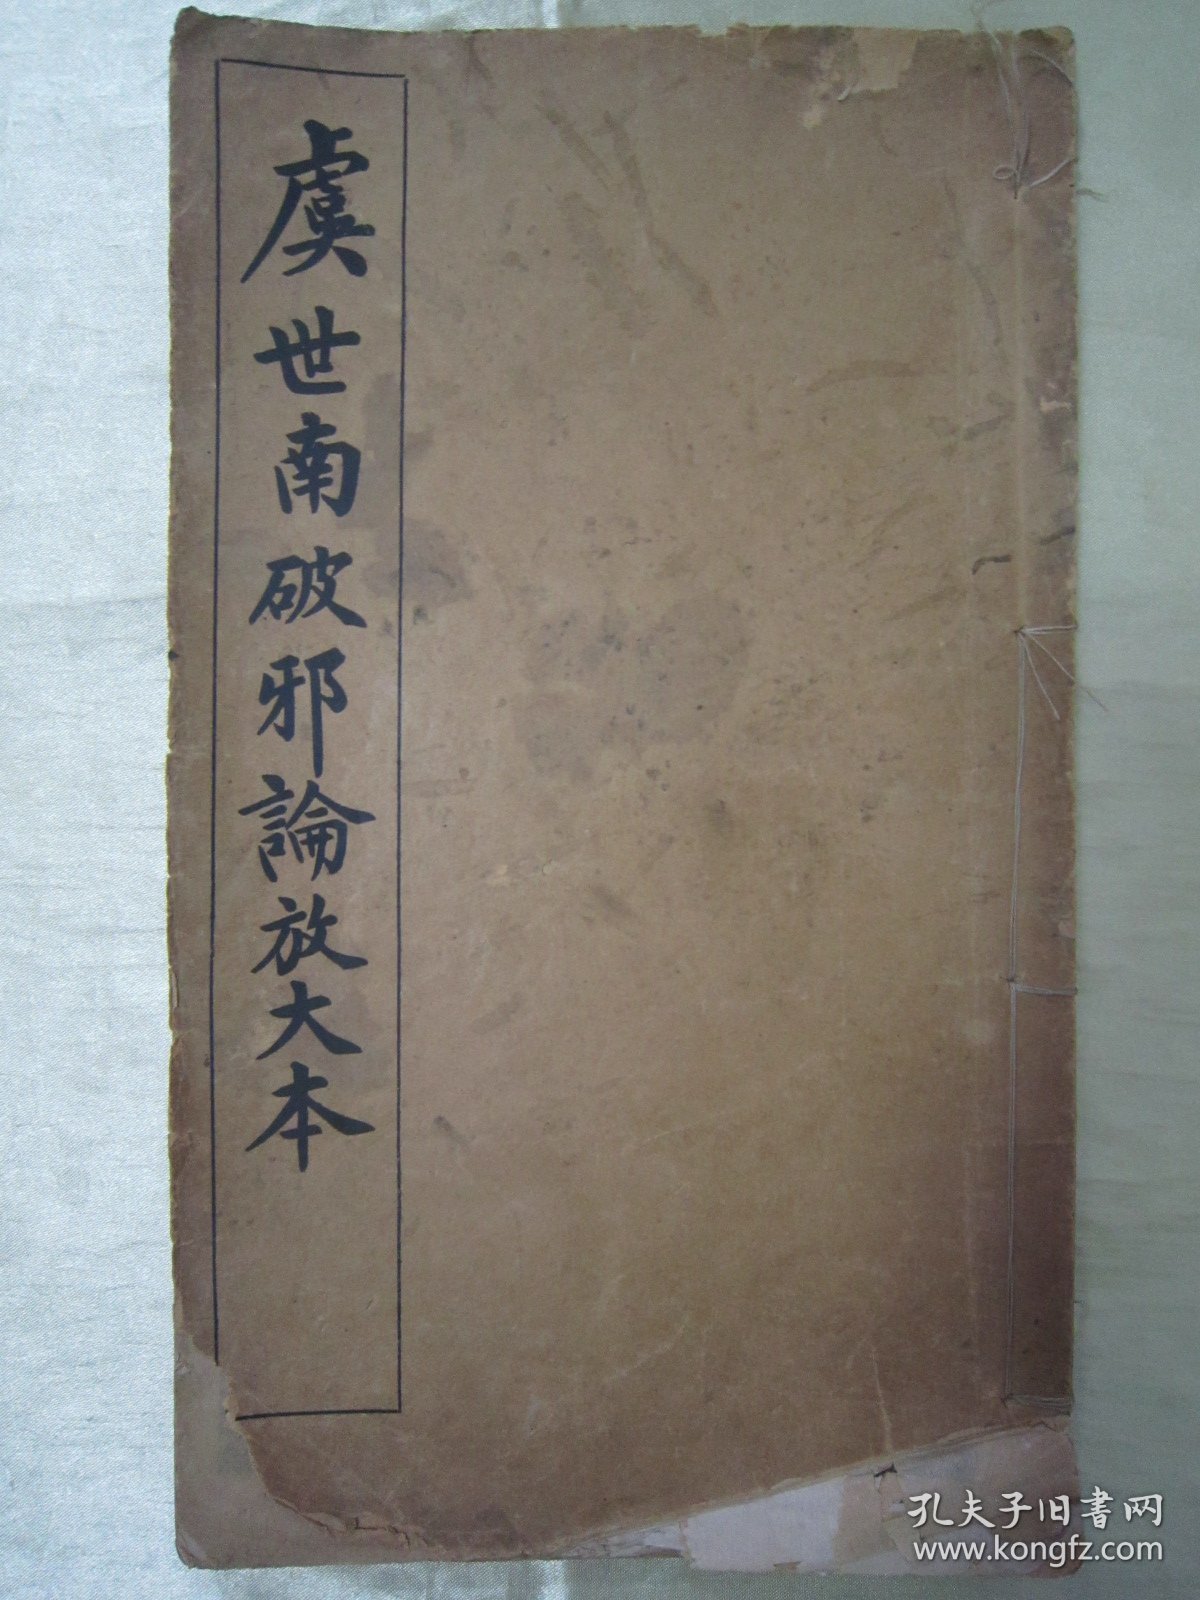 虞世南破邪論放大本
孔夫子旧書网
www.kongfz.com